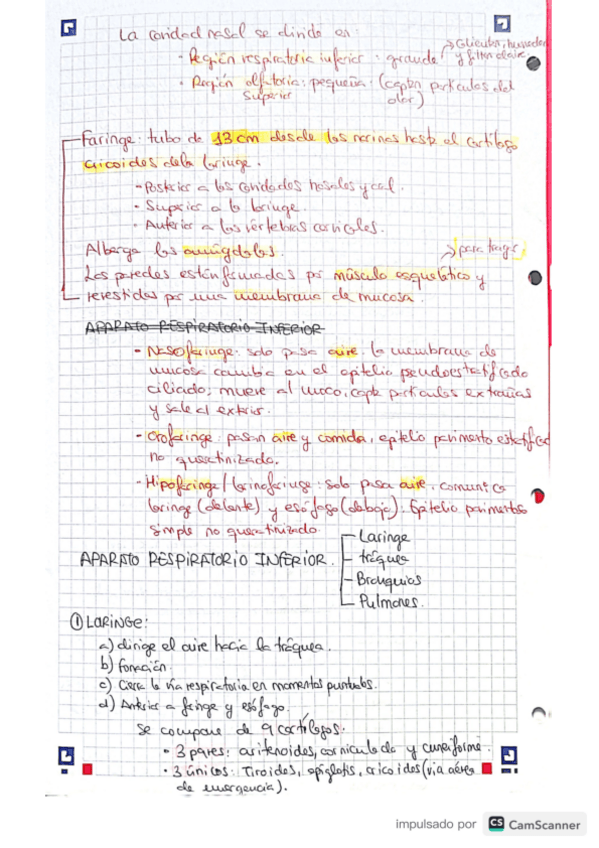 La cavidad nasal se divide en:
- Región respiratoria inferior: grande → Calienta, humedece
y filtra el aire.
- Región olfatoria: pequeña. (captan partículas del
superior olor)
Faringe: tubo de 13 cm desde las narinas hasta el cartílago
cricoides de la laringe.
- Posterior a las cavidades nasales y
- Superior a la laringe.
- Anterior a las vértebras cervicales.
Alberga las amígdalas. → para tragar
Las paredes están formadas por músculo esquelético y
revestidas por una membrana de mucosa.
APARATO RESPIRATORIO INFERIOR
- NESOfaringe: solo pasa aire. la membrana de
mucosa cambia en el epitelio pseudoestratificado
ciliado; mueve al moco, capta partículas extrañas
y sale al exterior.
- Orofaringe: pasan aire y comida, epitelio pavimento estratificado
no queratinizado.
- Hipofaringe/laringofaringe: solo pasa aire. comunica
laringe (delante) y esófago (debajo). Epitelio pavimentoso
simple no queratinizado.
APARATO RESPIRATORIO INFERIOR.
Laringe
- tráquea
- Bronquios
Pulmones.
① LARINGE:
a) dirige el aire hacia la tráquea.
b) fonación.
c) Cierra la vía respiratoria en momentos puntuales.
d) Anterior a faringe y esófago.
se compone de 9 cartílagos.
• 3 pares: aritenoides, corniculada y cuneiforme.
• 3 únicos: Tiroides, epiglotis, cricoides (vía aérea
de emergencia).
impulsado por CS CamScanner